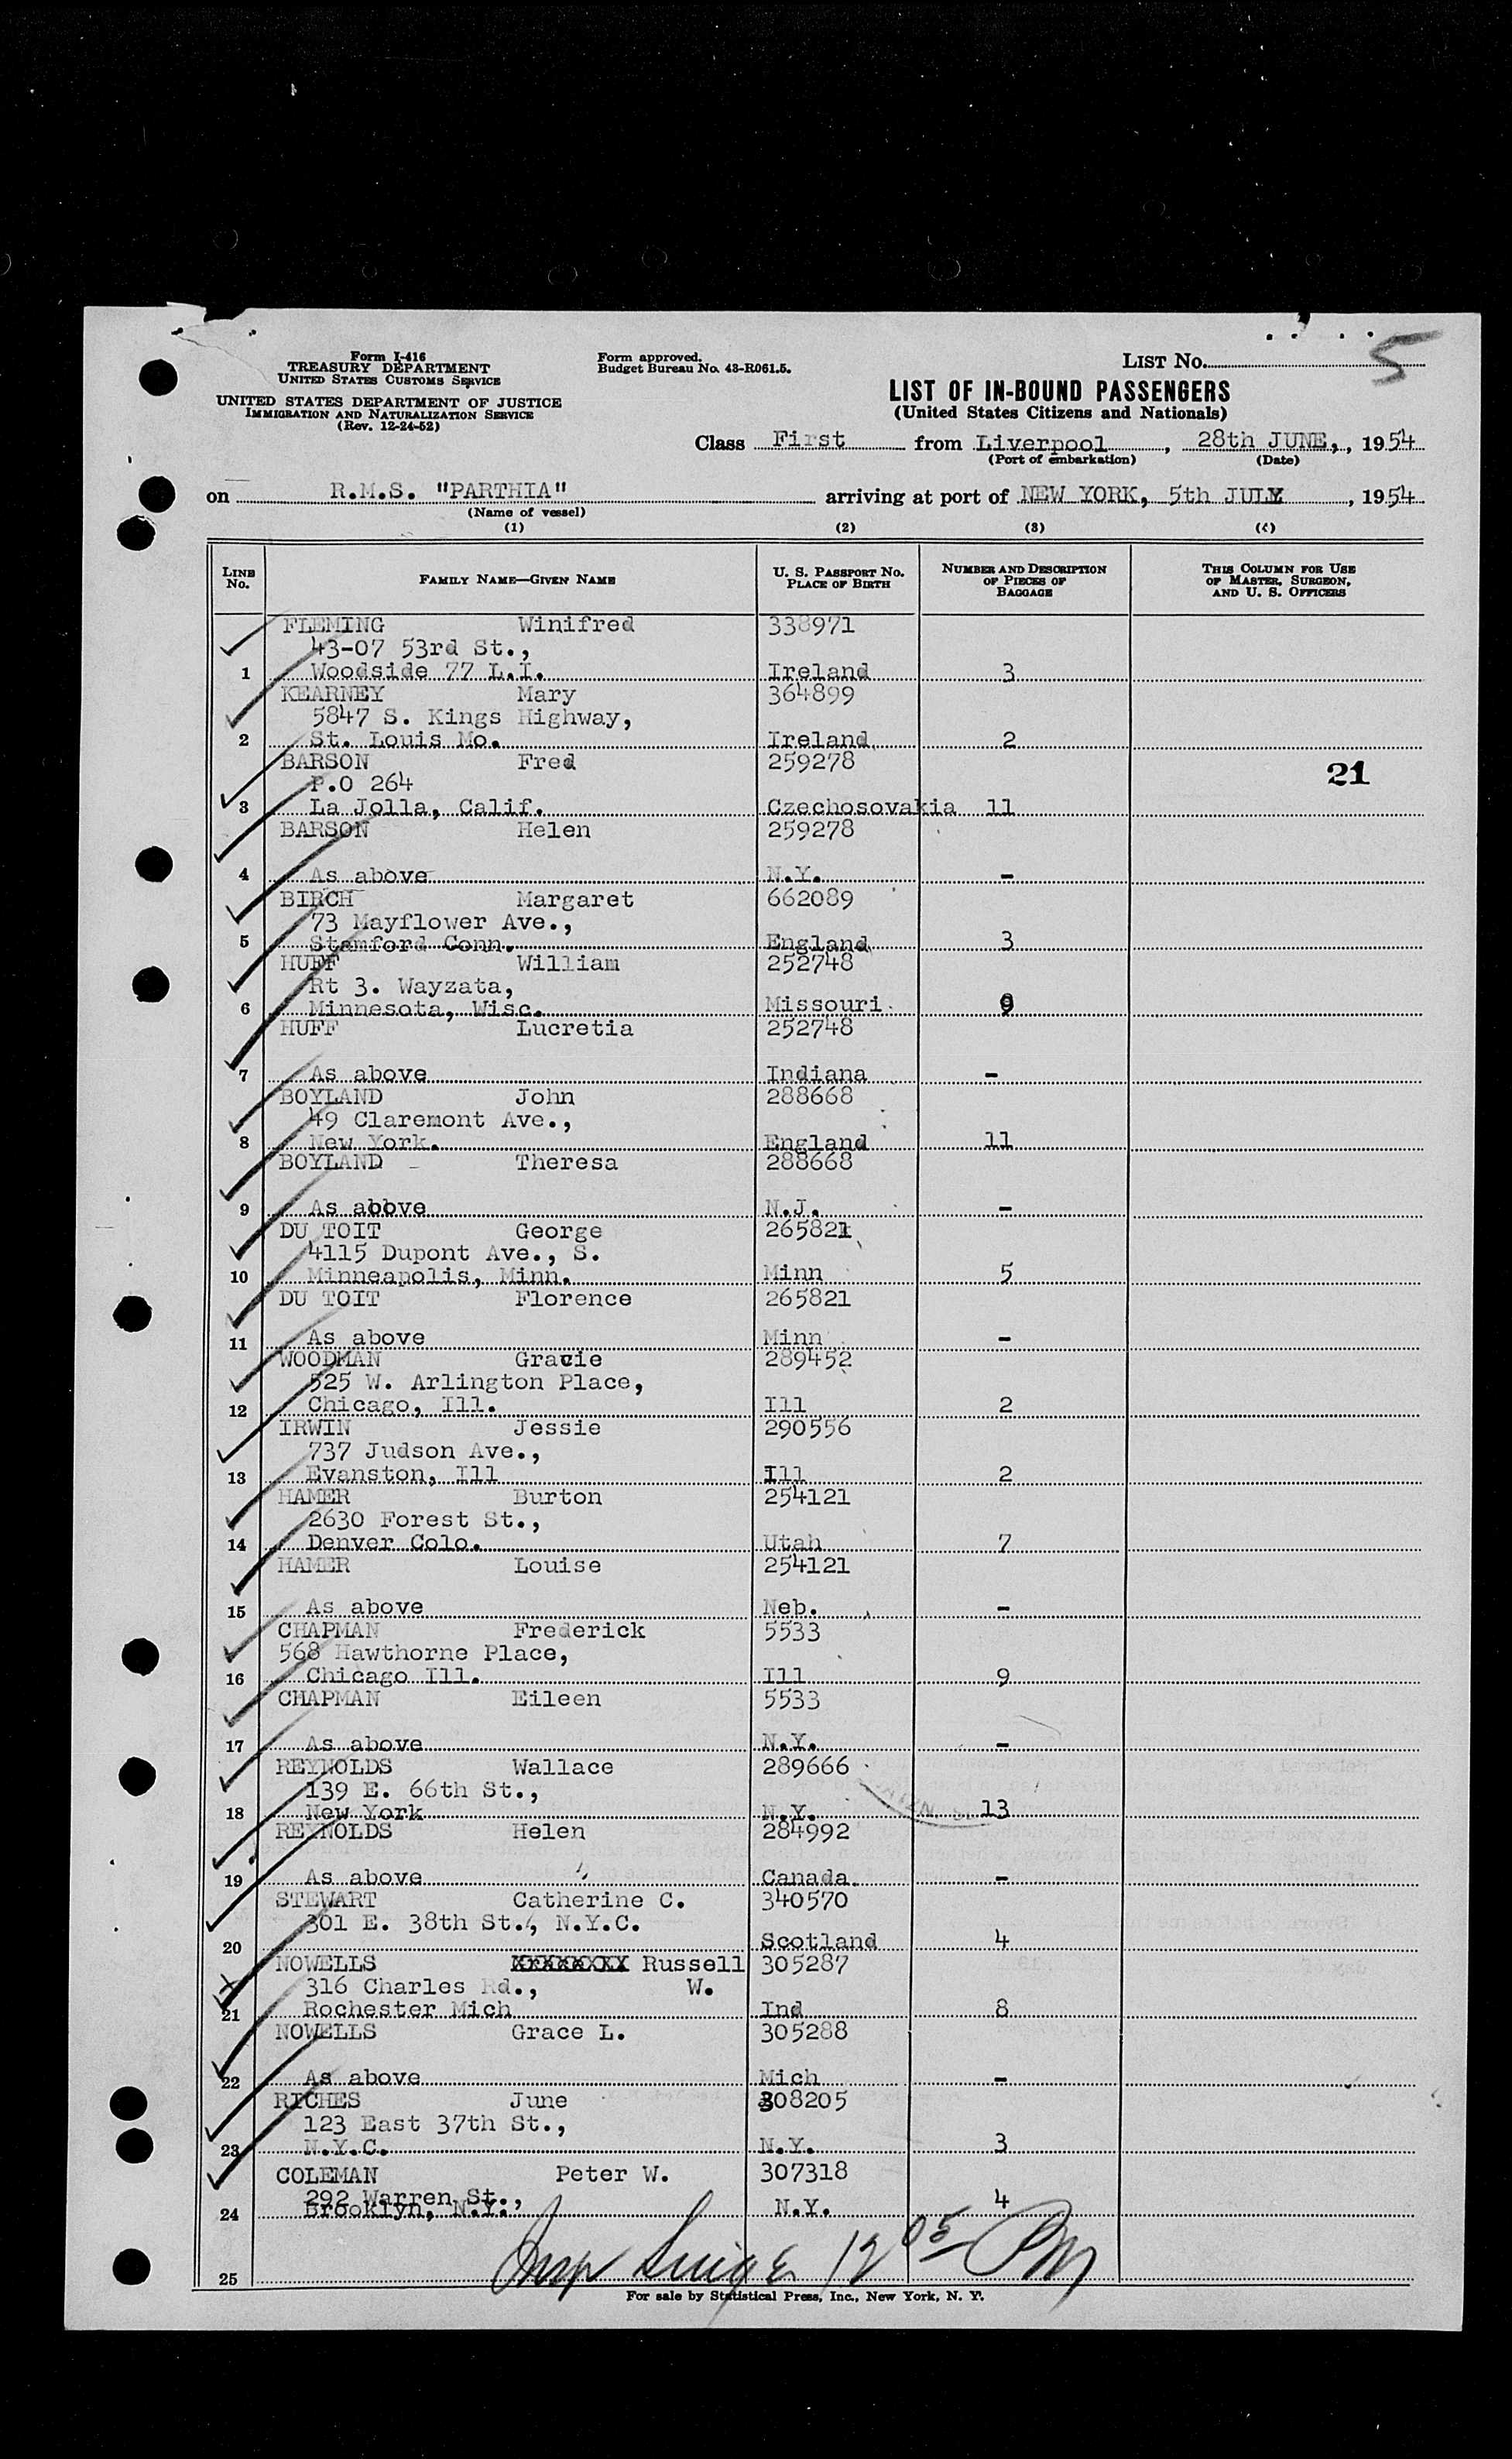 5
Form I-416
TREASURY DEPARTMENT
UNITED STATES CUSTOMS SERVICE
UNITED STATES DEPARTMENT OF JUSTICE
IMMIGRATION AND NATURALIZATION SERVICE
(Rev. 12-24-52)
Form approved.
Budget Bureau No. 43-R061.5.
LIST No.
LIST OF IN-BOUND PASSENGERS
(United States Citizens and Nationals)
Class First from Liverpool, 28th JUNE, , 1954
(Port of embarkation) (Date)
on R.M.S. "PARTHIA" arriving at port of NEW YORK, 5th JULY , 1954
(Name of vessel)
(1) (2) (3) (4)
LINE No. FAMILY NAME—GIVEN NAME U. S. PASSPORT No. PLACE OF BIRTH NUMBER AND DESCRIPTION OF PIECES OF BAGGAGE THIS COLUMN FOR USE OF MASTER, SURGEON, AND U. S. OFFICERS
FLEMING Winifred 338971
43-07 53rd St.,
1 Woodside 77 L.I. Ireland 3
KEARNEY Mary 364899
5847 S. Kings Highway,
2 St. Louis Mo. Ireland 2
BARSON Fred 259278
P.O 264 21
3 La Jolla, Calif. Czechosovakia 11
BARSON Helen 259278
4 As above N.Y. -
BIRCH Margaret 662089
73 Mayflower Ave.,
5 Stamford Conn. England 3
HUFF William 252748
Rt 3. Wayzata,
6 Minnesota, Wisc. Missouri 9
HUFF Lucretia 252748
7 As above Indiana -
BOYLAND John 288668
49 Claremont Ave.,
8 New York. England 11
BOYLAND Theresa 288668
9 As above N.J. -
DU TOIT George 265821
4115 Dupont Ave., S.
10 Minneapolis, Minn. Minn 5
DU TOIT Florence 265821
11 As above Minn -
WOODMAN Gracie 289452
525 W. Arlington Place,
12 Chicago, Ill. Ill 2
IRWIN Jessie 290556
737 Judson Ave.,
13 Evanston, Ill Ill 2
HAMER Burton 254121
2630 Forest St.,
14 Denver Colo. Utah 7
HAMER Louise 254121
15 As above Neb. -
CHAPMAN Frederick 5533
568 Hawthorne Place,
16 Chicago Ill. Ill 9
CHAPMAN Eileen 5533
17 As above N.Y. -
REYNOLDS Wallace 289666
139 E. 66th St.,
18 New York N.Y. 13
REYNOLDS Helen 284992
19 As above Canada -
STEWART Catherine C. 340570
301 E. 38th St., N.Y.C.
20 Scotland 4
NOWELLS Russell 305287
316 Charles Rd., W.
21 Rochester Mich Ind 8
NOWELLS Grace L. 305288
22 As above Mich -
RICHES June 308205
123 East 37th St.,
23 N.Y.C. N.Y. 3
COLEMAN Peter W. 307318
292 Warren St.,
24 Brooklyn, N.Y. N.Y. 4
Insp 12 05 PM
25
For sale by Statistical Press, Inc., New York, N. Y.